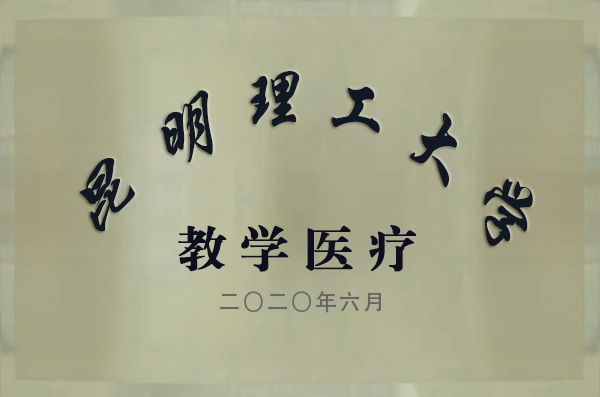 昆明理工大学
教学医疗
二〇二〇年六月